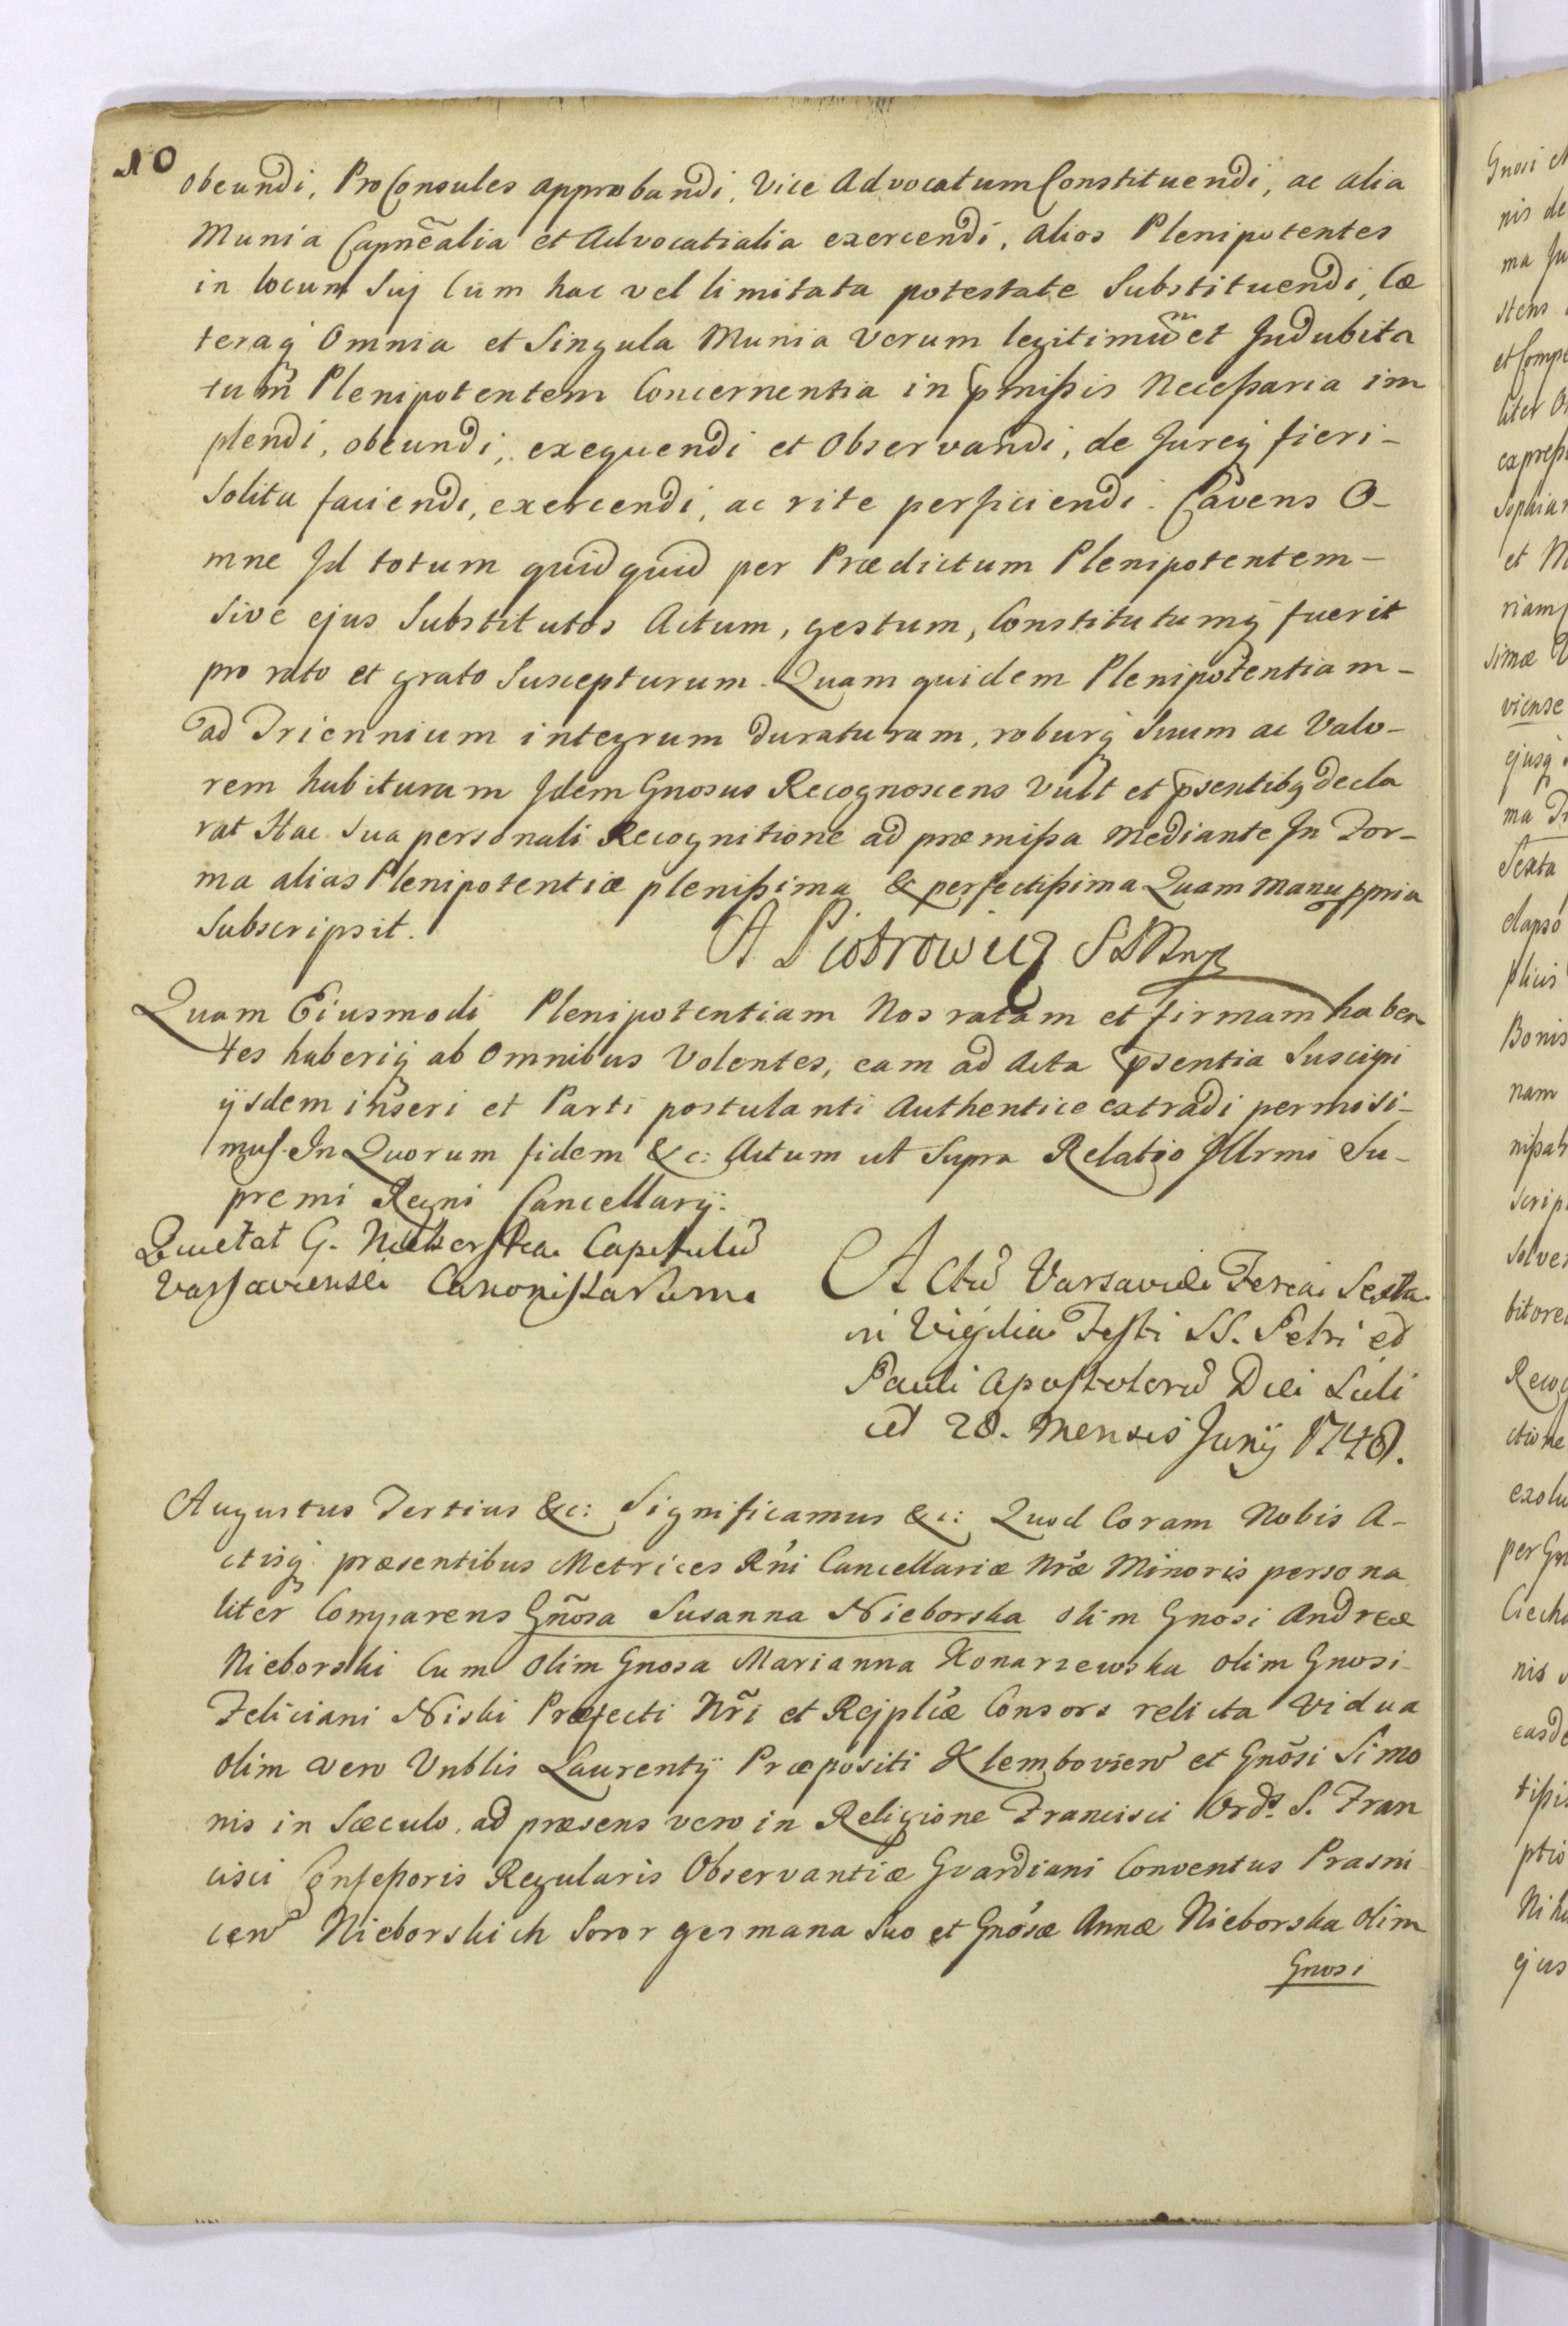 10
obeundi, ProConsules approbandi, Vice Advocatum Constituendi, ac alia
Munia Capnẽalia et Advocatialia exercendi, alios Plenipotentes
in locum Suj Cum hac vel limitata potestate Substituendi, Cæ
teraq Omnia et Singula Munia Verum legitimũ et Indubita
tum Plenipotentem Concernentia in pmißis Neceßaria im
plendi, obeundi, exequendi et Observandi, de Jureq fieri-
Solita faciendi, exercendi, ac rite perficiendi. Cavens O-
mne Id totum quidquid per Prædictum Plenipotentem-
Sive ejus Substitutos Actum, gestum, Constitutumq fuerit
pro rato et grato Suscepturum. Quam quidem Plenipotentiam-
ad Triennium integrum duraturam, roburq Suum ac Valo-
rem habituram Idem Gnosus Recognoscens Vult et psentibq decla
rat Hac Sua personali Recognitione ad præmißa mediante In For-
ma alias Plenipotentiæ plenißima & perfectißima Quam manu ppria
Subscripsit.
A Piotrowicz
Quam Eiusmodi Plenipotentiam Nos ratam et firmam haben
tes haberiq ab Omnibus Volentes, eam ad Acta psentia Suscipi
ijsdem inseri et Parti postulanti Authentice extradi permisi-
mus. In Quorum fidem &c: Actum ut Supra Relatio Illrmi Su-
premi Regni Cancellarij.
Quietat G. Nieborska Capitulũ
Varsaviense Canonissarum
Actũ Varsaviæ Feria Sexta
in Vigilia Festi SS. Petri et
Pauli Apostolorũ Die Scili
cet 28. Mensis Junij 1748.
Augustus Tertius &c: Significamus &c: Quod Coram Nobis A-
ctisq præsentibus Metrices Rñi Cancellariæ Nræ Minoris persona
liter Comparens Gñosa Susanna Nieborska olim Gnosi Andreæ
Nieborski Cum olim Gnosa Marianna Konarzewska olim Gnosi
Feliciani Niski Præfecti Nr̃i et Rejplicæ Consors relicta Vidua
olim vero Vnblis Laurentij Præpositi Klembovien et Gnõsi Simo
nis in Sæculo, ad præsens vero in Religione Francisci Ords. S. Fran
cisci Confeßoris Regularis Observantiæ Gvardiani Conventus Prasni
cen Nieborskich Soror germana Suo et Gnosæ Annæ Nieborska olim
Gnosi